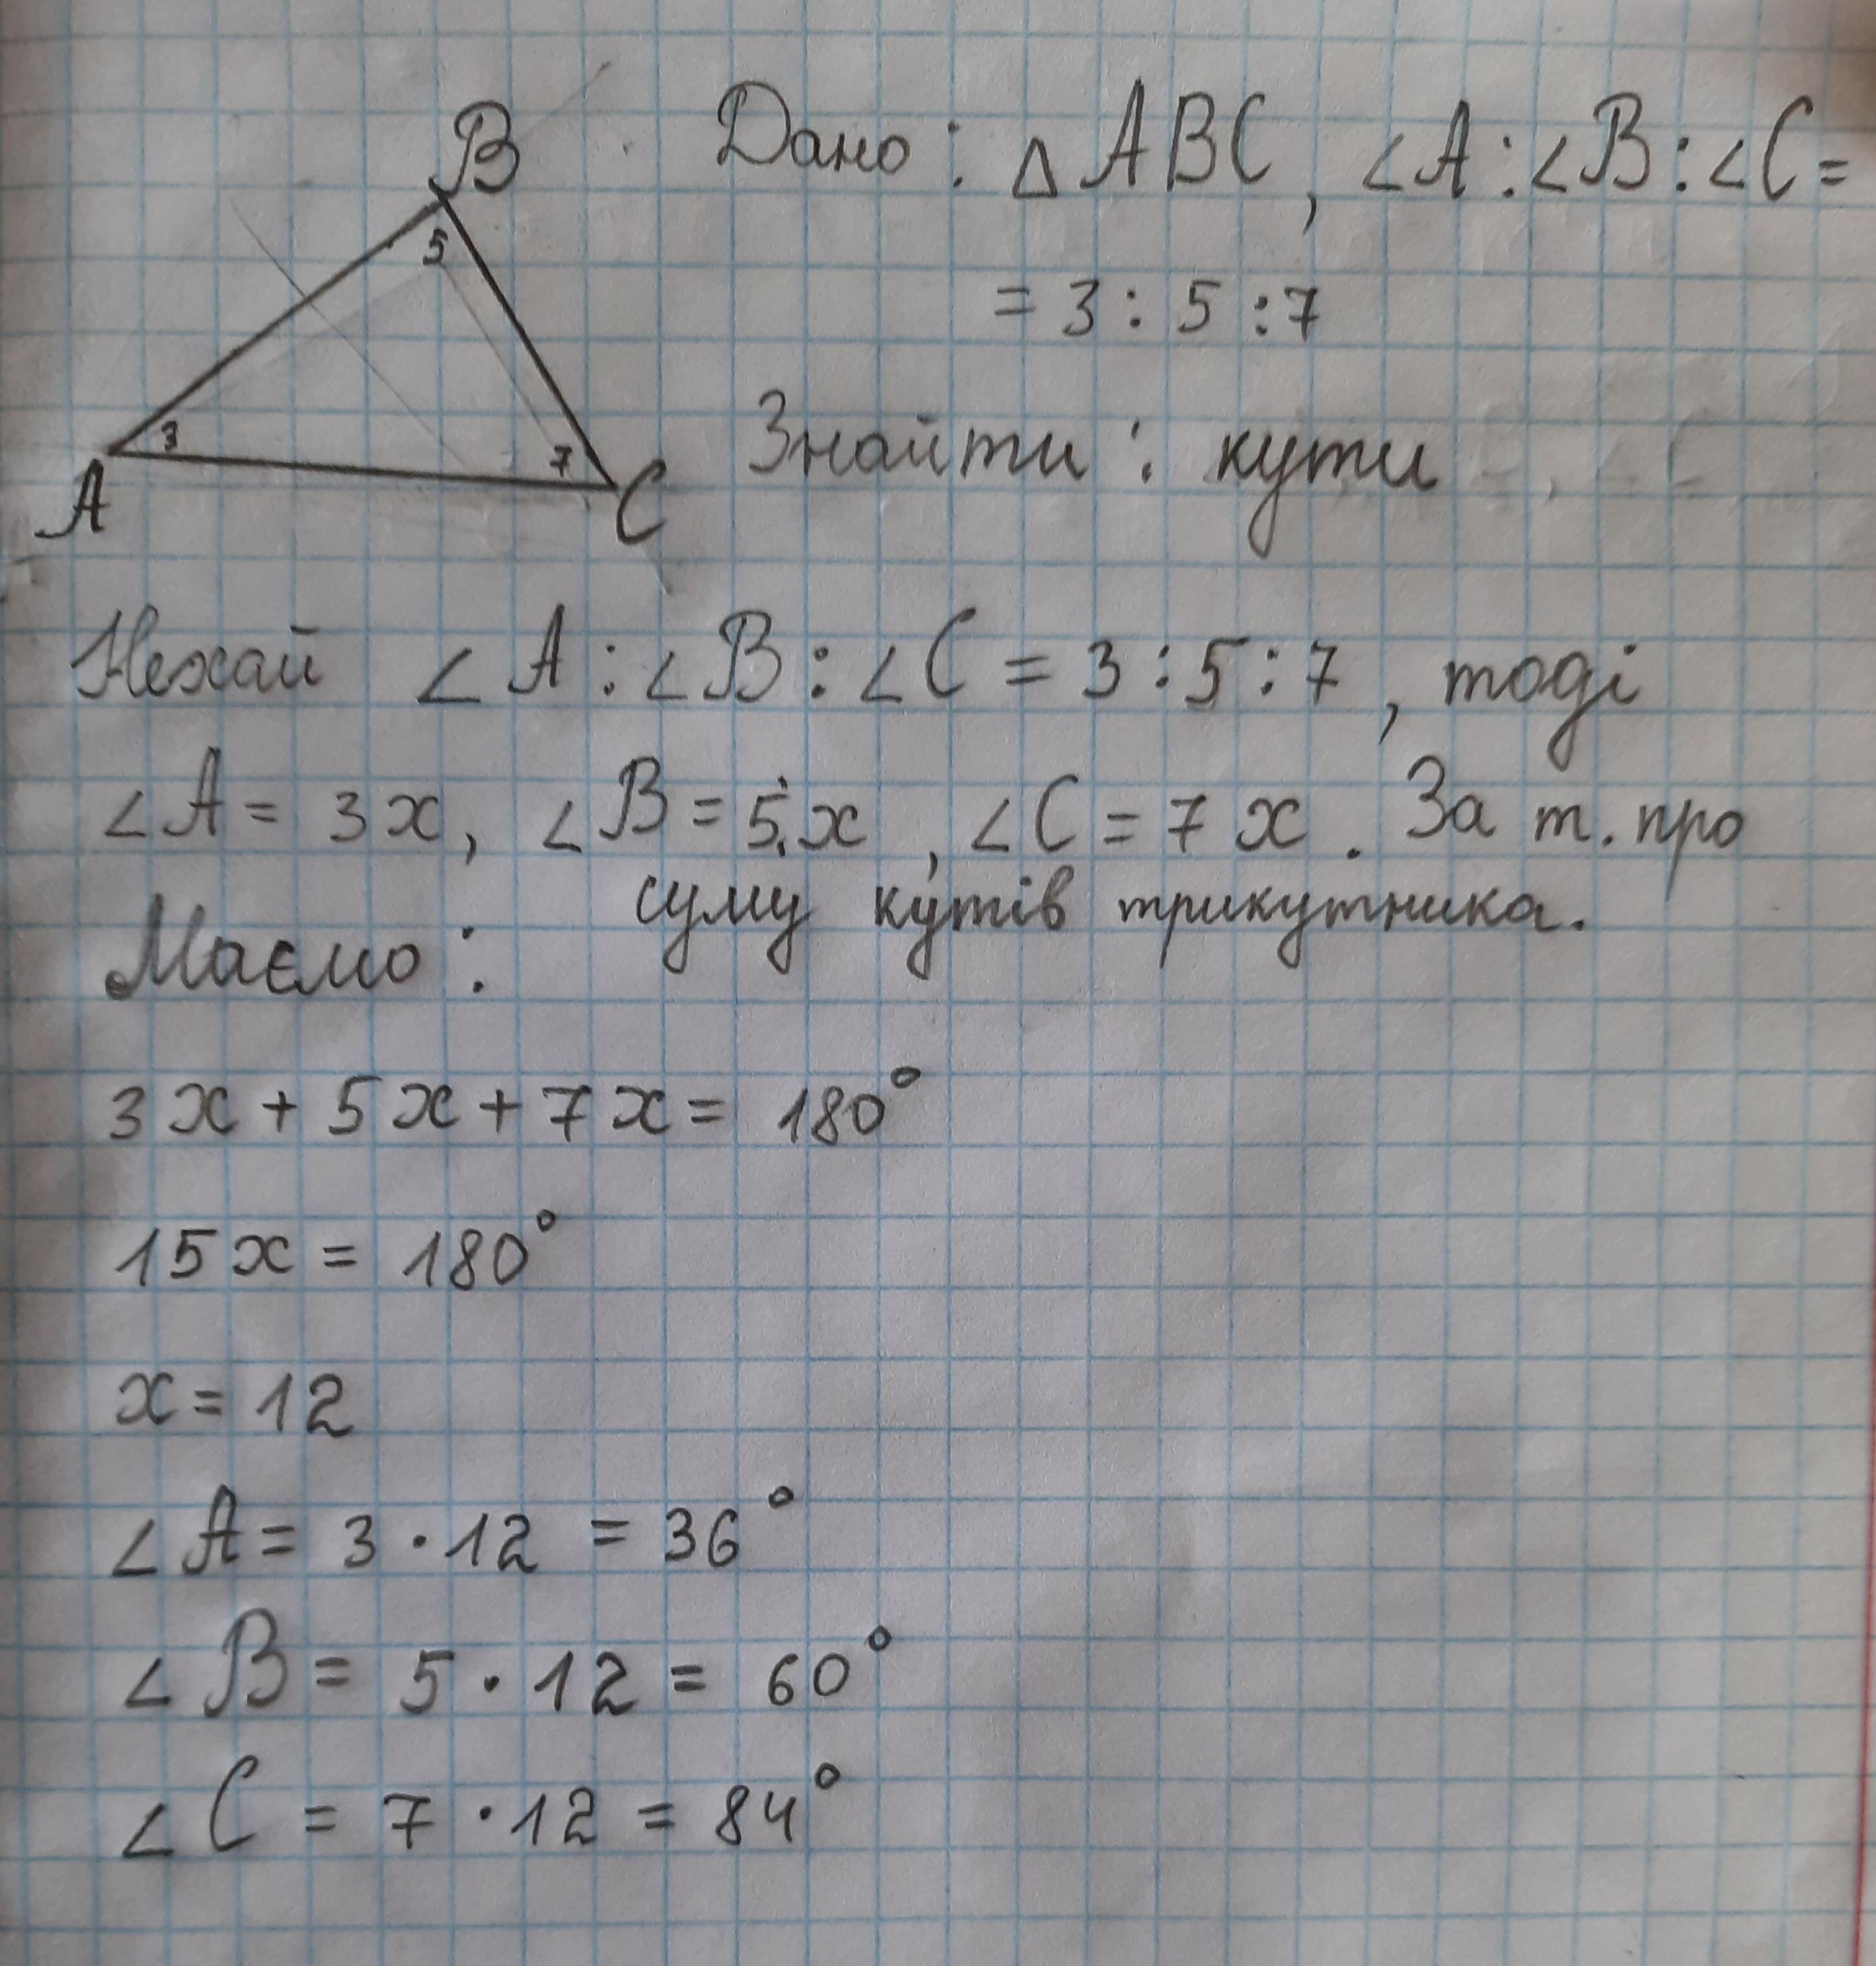 B
5
3
7
A
C
Дано: △ABC, ∠A:∠B:∠C=
= 3:5:7
Знайти: кути
Нехай ∠A:∠B:∠C = 3:5:7, тоді
∠A = 3x, ∠B = 5x, ∠C = 7x. За т. про
суму кутів трикутника.
Маємо:
3x + 5x + 7x = 180°
15x = 180°
x = 12
∠A = 3 · 12 = 36°
∠B = 5 · 12 = 60°
∠C = 7 · 12 = 84°